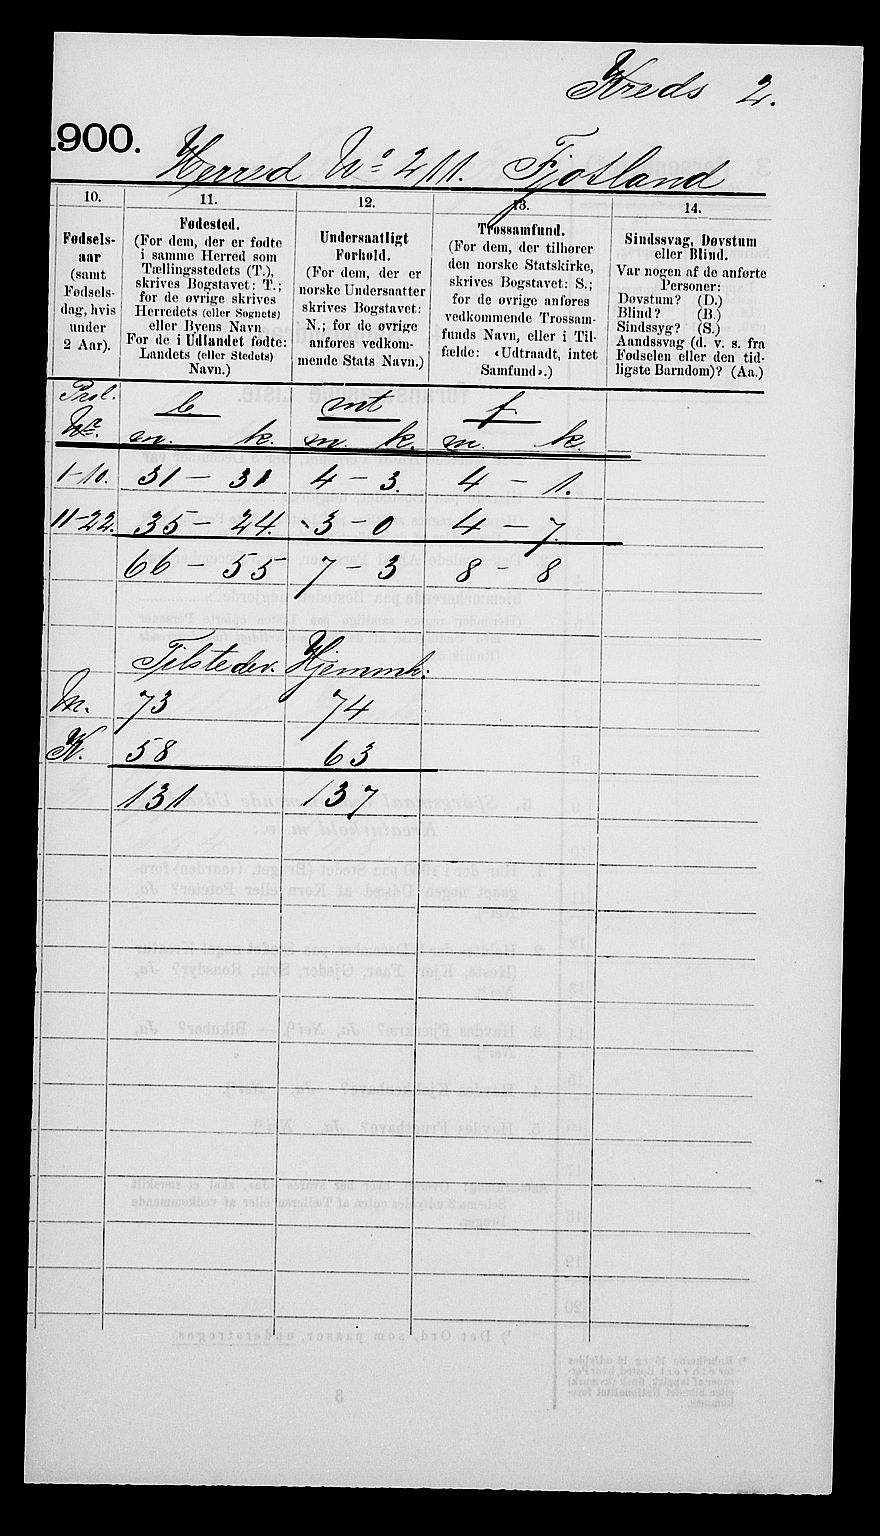 Kreds 2.
1900.
Herred No 211. Fjotland
10.
Fødsels-
aar
(samt
Fødsels-
dag, hvis
under
2 Aar).
11.
Fødested.
(For dem, der er fødte
i samme Herred som
Tællingsstedets (T.),
skrives Bogstavet: T.;
for de øvrige skrives
Herredets (eller Sognets)
eller Byens Navn
For de i Udlandet fødte:
Landets (eller Stedets)
Navn.)
12.
Undersaatligt
Forhold.
(For dem, der er
norske Undersaatter
skrives Bogstavet:
N.; for de øvrige
anføres vedkom-
mende Stats Navn.)
13.
Trossamfund.
(For dem, der tilhører
den norske Statskirke,
skrives Bogstavet: S.;
for de øvrige anføres
vedkommende Trossam-
funds Navn, eller i Til-
fælde: «Udtraadt, intet
Samfund».)
14.
Sindssvag, Døvstum
eller Blind.
Var nogen af de anførte
Personer:
Døvstum? (D.)
Blind? (B.)
Sindssyg? (S.)
Aandssvag (d. v. s. fra
Fødselen eller den tid-
ligste Barndom)? (Aa.)
b mt f
No. m. k. m. k. m. k.
1-10. 31 - 31 4 - 3. 4 - 1.
11-22. 35 - 24. 3 - 0 4 7.
66 - 55 7 - 3 8 - 8
Tilstedev. Hjemmh:
M. 73 74
K. 58 63
131 137